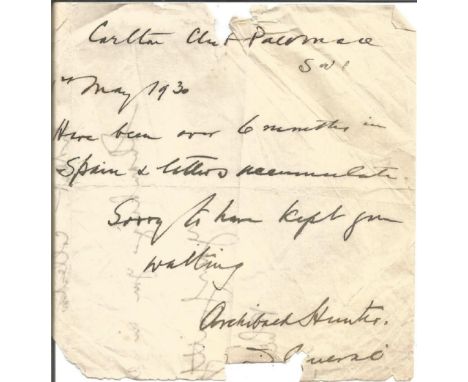 Carlton Club Pall Mall
S W 1
1st May 1930
Have been over 6 months in
Spain & letters accumulate.
Sorry to have kept you
waiting
Archibald Hunter.
General